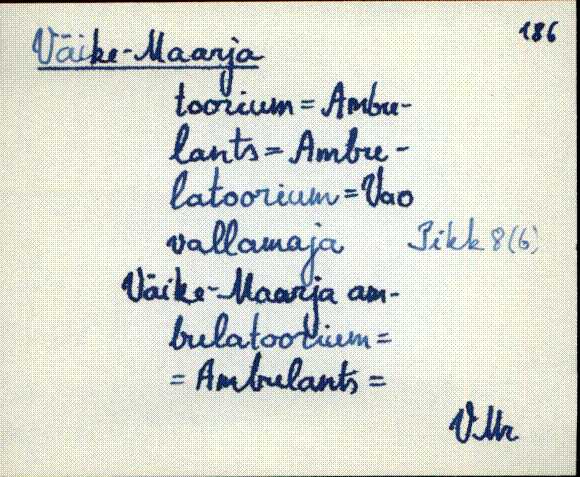 186
Väike-Maarja
toorium = Ambu-
lants = Ambu-
latoorium = Vao
vallamaja Pikk 8(6)
Väike-Maarja am-
bulatoorium =
= Ambulants =
VMr